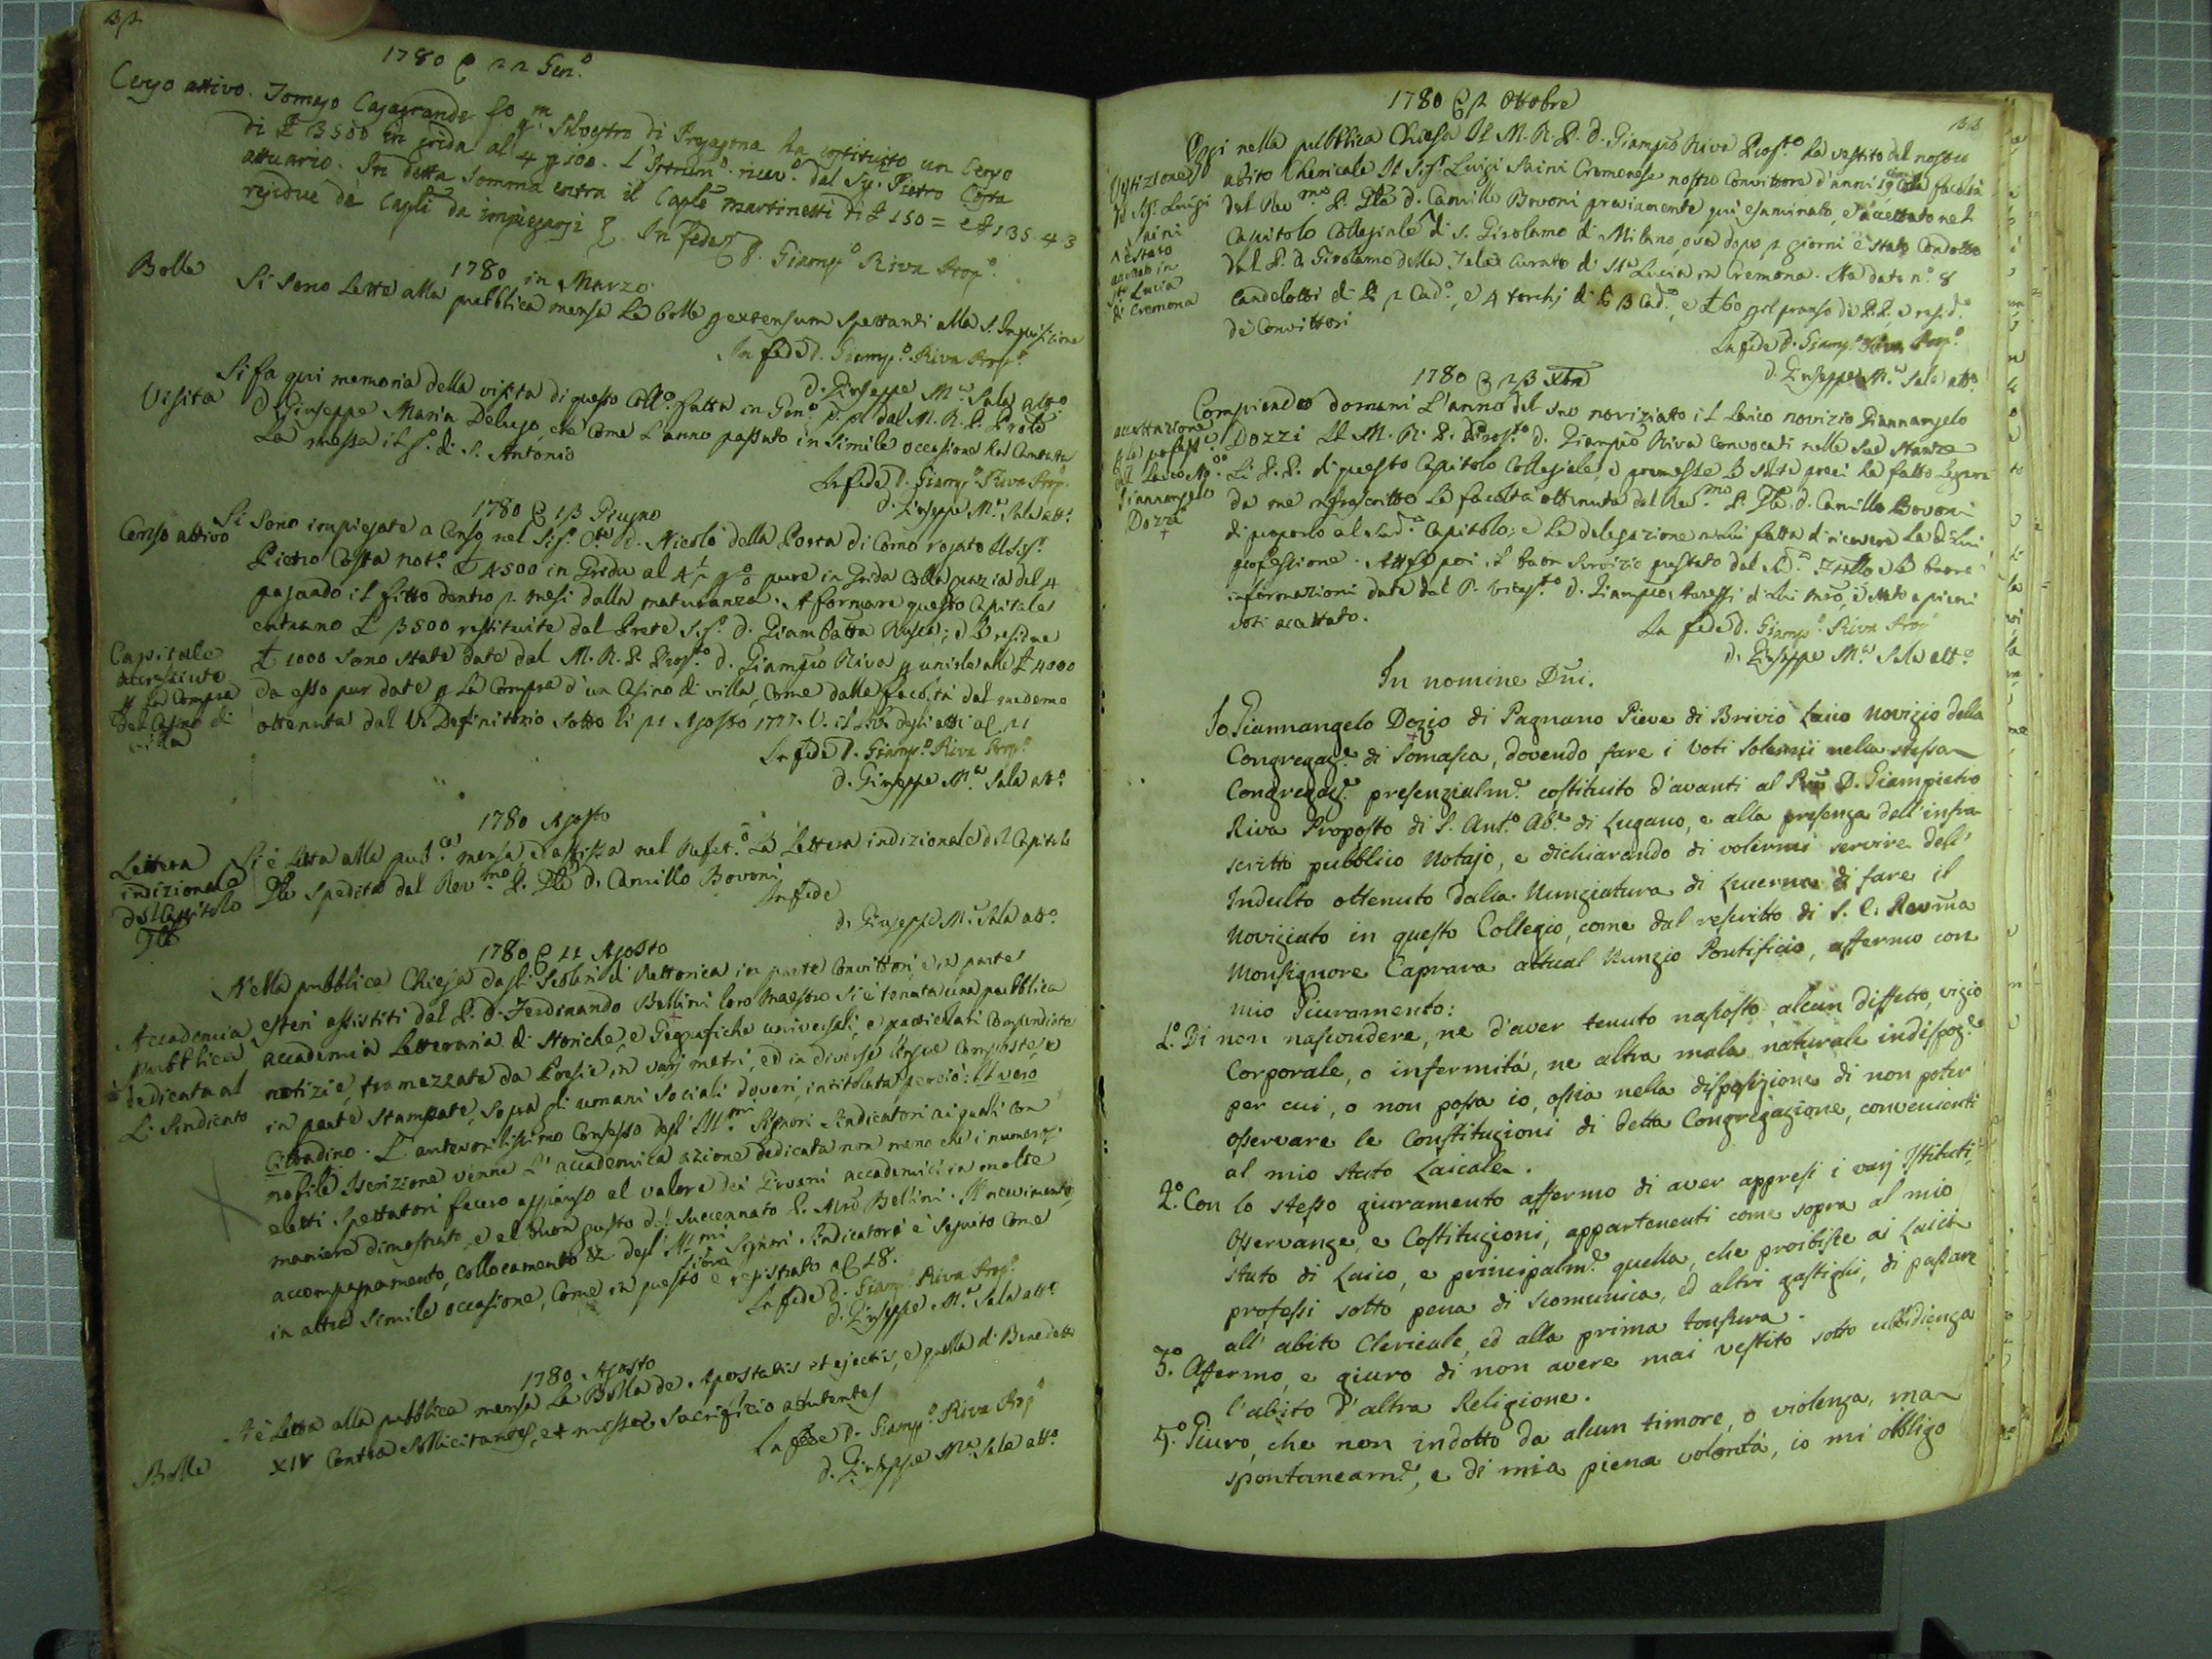 1780 22 Gen.o
Censo attivo. Tomaso Casagrande fo qm Silvestro di Progagona ha costituito un Censo
di £ 3500 in grida al 4 p 100. L'Istrum.o ricev.o dal Sig. Pietro Costa
attuario. In detta somma entra il Caple Martinetti di £ 150 = e £ 135.4.3
residue dè Capli da impiegarsi &. In fede D. Giamp.o Riva Prop.o
1780 in Marzo
Bolle Si sono Lette alla pubblica mensa Le bolle p extensum Spettanti alla S. Inquisizione
In fede d. Giamp.o Riva Prop.o
d. Giuseppe M.a Sala att.o
Visita Si fa qui memoria della visita di questo Coll.o fatta in Gen.o p. p. dal M. R. P. Prole
D. Giuseppe Maria Delugo, che come L'anno passato in simile occasione ha Cantata
La messa il g.o di S. Antonio
In fede d. Giamp.o Riva Prop.o
d. Giuseppe M.a Sala att.o
1780 13 Giugno
Censo attivo Si sono impiegate a Censo nel Sig. C.te d. Nicolò della Porta di Como rogato Il Sig.r
Pietro Costa not.o £ 4500 in Grida al 4 ½ p % pure in Grida colla grazia del 4
pagando il fitto dentro 2 mesi dalla maturanza. A formare questo Capitale
entrano £ 3500 restituite dal Prete Sig.r d. Giambatta Rusca; e Le residue
Capitale
accresciuto
p La Compra
del Casino di
villa
£ 1000 sono state date dal M. R. P. Prop.to d. Giampro Riva p unirle alle £ 4000
da esso pur date p La Compra d'un Casino di villa, come dalla facoltà dal medemo
ottenuta dal V. Definitorio sotto li 21 Agosto 1777. V. il Lib. degli atti al 21
In fede d. Giamp.o Riva Prop.o
d. Giuseppe M.a Sala att.o
1780 Agosto
Lettera
indizionale
del Capitolo
Gle
Si è Letta alla pub.ca mensa, ed affissa nel Refet.o La Lettera indizionale del Capitolo
Gle spedita dal Rev.mo P. Gle D. Camillo Bovoni
In fede
d. Giuseppe M.a Sala att.o
1780 22 Agosto
Accademia
pubblica
dedicata al
L. Sindicato
Nella pubblica Chiesa dagli Scolari di Rettorica in parte Convittori, e in parte
esteri assistiti dal P. D. Ferdinando Bellini loro Maestro si è tenuta una pubblica
accademia Letteraria di Storiche, e Geografiche universali, e particolari Compendiate
notizie, framezzate da Poesie in varj metri, ed in diverse lingue composte, e
in parte stampate, sopra gli umani sociali doveri, intitolata perciò: Il vero
Cittadino. L'autorevolissimo Consesso degl'Ill.mi Signori Sindicatori ai quali con
nobile Iscrizione venne L'accademica azione dedicata non meno che i numerosi
eletti Spettatori fecero applauso al valore dei Giovani accademici in molte
maniere dimostrato, e al Buon gusto del succennato P. Mro Bellini. Il ricevimento,
accompagnamento, collocamento &c degl'Ill.mi Signori Sindicatori è seguito come
in altra simile occasione, come in questo libro è registrato a 28.
In fede d. Giamp.o Riva Prop.o
d. Giuseppe M.a Sala att.o
1780 Agosto
Bolle Si è Letta alla pubblica mensa La Bolla de Apostatis et ejectis, e quella di Benedetto
XIV Contra Sollicitantes, et missae sacrificio abutentes
In fede d. Giamp.o Riva Prop.o
d. Giuseppe M.a Sala att.o
33
1780 2 Ottobre
Vestizione
del Sig.r Luigi
Saini
è stato
accettato in
S.ta Lucia
di Cremona
Oggi nella pubblica Chiesa Il M. R. P. d. Giampro Riva Prop.to ha vestito del nostro
abito Chericale Il Sig.r Luigi Saini Cremonese nostro Convittore d'anni 19 Colla facoltà
del Rev.mo P. Gle d. Camillo Bovoni previamente qui esaminato, e accettato nel
Capitolo Collegiale di S. Girolamo di Milano, ove dopo 2 giorni è stato Condotto
dal P. d. Girolamo della Tela Curato di S.ta Lucia in Cremona. Ha dato n.o 8
Candelotti di ℔ 2 Cad.o, e 4 torchj di ℔ 3 Cad.o, e £ 60 pel pranso de P.P., e resid.o
dè Convittori
In fede d. Giamp.o Riva Prop.o
d. Giuseppe M.a Sala att.o
1780 23 Xbre
accettazione
p la profess.e
del Laico Nov.o
Giannangelo
Dozzi
Compiendo domani L'anno del suo noviziato il Laico novizio Giannangelo
Dozzi Il M. R. P. Prop.to d. Giampro Riva Convocati nelle sue stanze
Li P.P. di questo Capitolo Collegiale, e premesse Le solite preci ha fatto Leggere
da me infrascritto La facoltà ottenuta dal Rev.mo P. Gle d. Camillo Bovoni
di proporlo al sud.o Capitolo; e La delegazione a Lui fatta di ricevere La di Lui
professione. Atteso poi il buon servizio prestato dal sud.o Frello e Le buone
informazioni date dal P. Vicep.to D. Giampro Varesi di Lui Mro, è stato a pieni
voti accettato.
In fede d. Giamp.o Riva Prop.o
d. Giuseppe M.a Sala att.o
In nomine Dni.
Io Giannangelo Dozio di Pagnano Pieve di Brivio Laico Novizio della
Congregaz.e di Somasca, dovendo fare i Voti solenni nella stessa
Congregaz.e presenzialm.e costituito d'avanti al Rmo D. Giampietro
Riva Proposto di S. Ant.o Ab.e di Lugano, e alla presenza dell'infra-
scritto pubblico Notajo, e dichiarando di volermi servire dell'
Indulto ottenuto dalla Nunziatura di Lucerna di fare il
Noviziato in questo Collegio, come dal rescritto di S. E. Revma
Monsignore Caprara attual Nunzio Pontificio, affermo con
mio Giuramento:
1.o Di non nascondere, ne d'aver tenuto nascosto alcun diffetto, vizio
Corporale, o infermità, ne altra mala naturale indisposiz.e
per cui, o non possa io, ossia nella disposizione di non poter
osservare le Constituzioni di detta Congregazione, convenienti
al mio stato Laicale.
2.o Con lo stesso giuramento affermo di aver appresi i varj Istituti,
Osservanze, e Costituzioni, appartenenti come sopra al mio
stato di Laico, e principalm.e quella, che proibisce ai Laici
professi sotto pena di scomunica, ed altri gastighi, di passare
all'abito Clericale, ed alla prima tonsura.
3.o Affermo, e giuro di non avere mai vestito sotto ubbidienza
l'abito d'altra Religione.
4.o Giuro, che non indotto da alcun timore, o violenza, ma
spontaneam.e, e di mia piena volontà, io mi obbligo